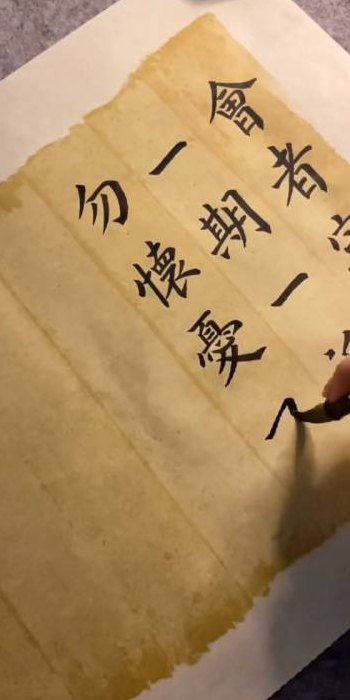 會者
一期一
勿懷憂